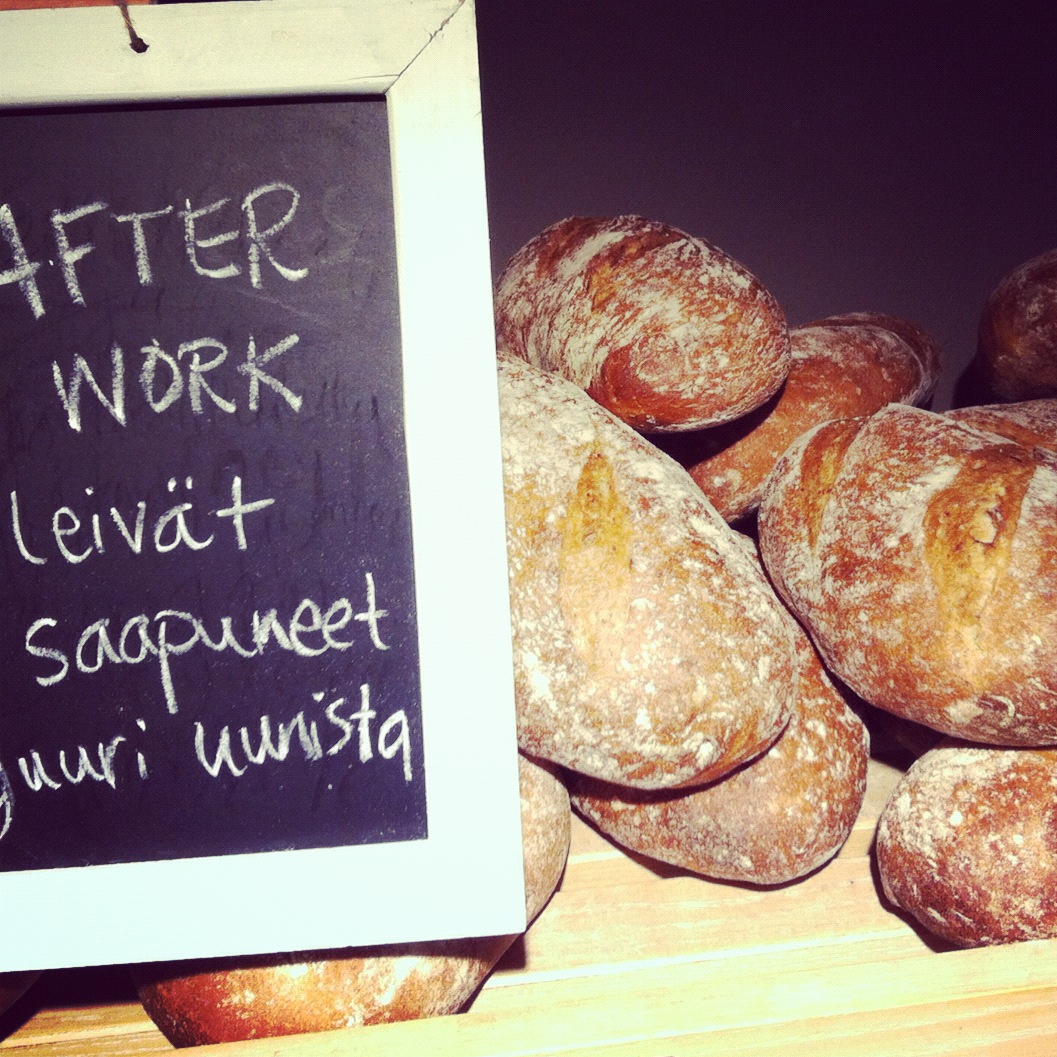 AFTER
WORK
leivät
saapuneet
juuri uunista